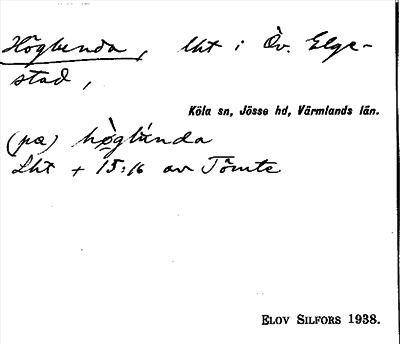 Höglunda, lht i Öv. Elge-
stad,
Köla sn, Jösse hd, Värmlands län.
(pa) høglúnda
Lht + 15:16 av Tömte
ELOV SILFORS 1938.